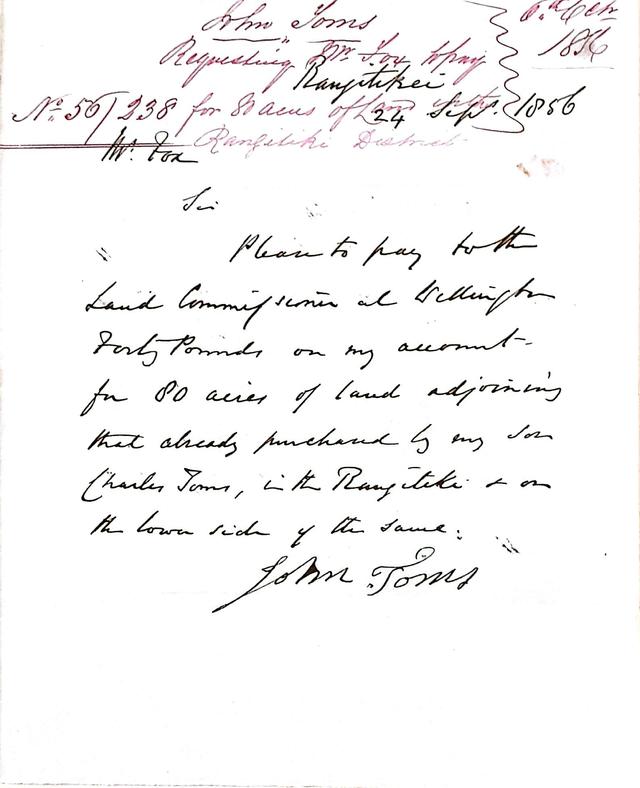 John Toms
6th Octr
1856
Requesting Mr Fox to pay
Rangitikei
No. 56/238 for 80 acres of land in the
24 Sept. 1856
Rangitiki District
Mr. Fox
Sir
Please to pay to the
Land Commissioner at Wellington
Forty Pounds on my account
for 80 acres of land adjoining
that already purchased by my son
Charles Toms, in the Rangitiki & on
the lower side of the same.
John Toms